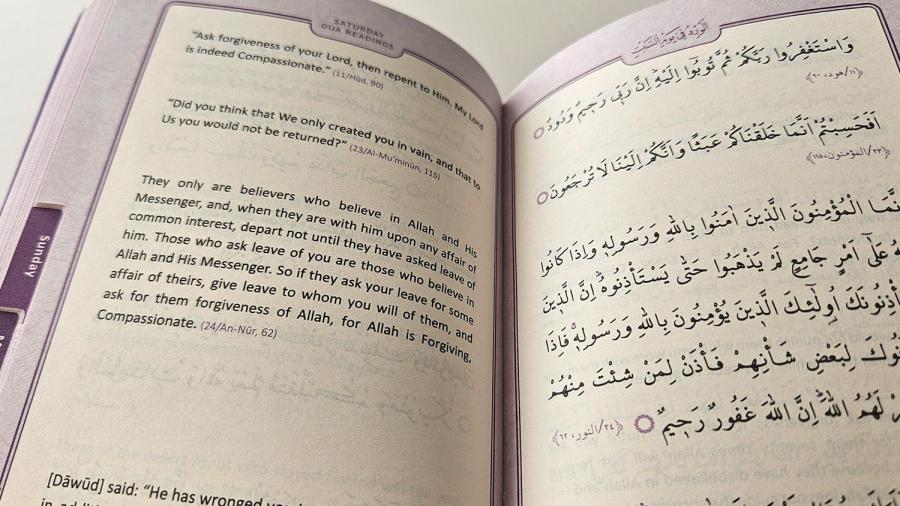 SATURDAY
DUA READINGS
"Ask forgiveness of your Lord, then repent to Him. My Lord
is indeed Compassionate." (11/Hūd, 90)
"Did you think that We only created you in vain, and that to
Us you would not be returned?" (23/Al-Mu'minūn, 115)
They only are believers who believe in Allah and His
Messenger, and, when they are with him upon any affair of
common interest, depart not until they have asked leave of
him. Those who ask leave of you are those who believe in
Allah and His Messenger. So if they ask your leave for some
affair of theirs, give leave to whom you will of them, and
ask for them forgiveness of Allah, for Allah is Forgiving,
Compassionate. (24/An-Nūr, 62)
[Dāwūd] said: "He has wronged
Sunday
وَاسْتَغْفِرُوا رَبَّكُمْ ثُمَّ تُوبُوا اِلَيْهِ اِنَّ رَبّ۪ى رَح۪يمٌ وَدُودٌ
﴿١١/هود، ٩٠﴾
اَفَحَسِبْتُمْ اَنَّمَا خَلَقْنَاكُمْ عَبَثًا وَاَنَّكُمْ اِلَيْنَا لَا تُرْجَعُونَ
﴿٢٣/المؤمنون، ١١٥﴾
الْمُؤْمِنُونَ الَّذ۪ينَ اٰمَنُوا بِاللّٰهِ وَرَسُولِه۪ وَاِذَا كَانُوا
عَلٰٓى اَمْرٍ جَامِعٍ لَمْ يَذْهَبُوا حَتّٰى يَسْتَأْذِنُوهُ اِنَّ الَّذ۪ينَ
اُولٰٓئِكَ الَّذ۪ينَ يُؤْمِنُونَ بِاللّٰهِ وَرَسُولِه۪ فَاِذَا
لِبَعْضِ شَأْنِهِمْ فَأْذَنْ لِمَنْ شِئْتَ مِنْهُمْ
لَهُمُ اللّٰهَ اِنَّ اللّٰهَ غَفُورٌ رَح۪يمٌ ﴿٢٤/النور، ٦٢﴾